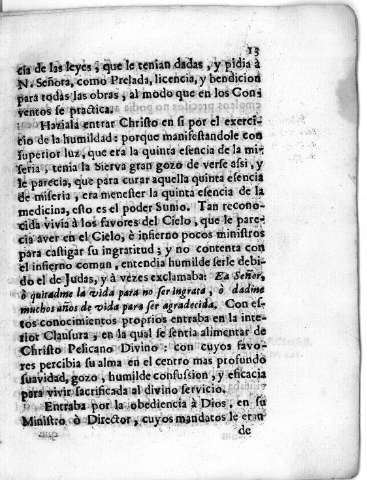 13
cia de las leyes, que le tenian dadas, y pidia à
N. Señora, como Prelada, licencia, y bendicion
para todas las obras, al modo que en los Con-
ventos se practica.
Haziala entrar Christo en si por el exerci-
cio de la humildad: porque manifestandole con
superior luz, que era la quinta esencia de la mi-
seria, tenia la Sierva gran gozo de verse assi, y
le parecia, que para curar aquella quinta esencia
de miseria, era menester la quinta esencia de la
medicina, esto es el poder Sumo. Tan recono-
cida vivia à los favores del Cielo, que le pare-
cia aver en el Cielo, è infierno pocos ministros
para castigar su ingratitud; y no contenta con
el infierno comun, entendia humilde serle debi-
do el de Judas, y à vezes exclamaba: Ea Señor,
ò quitadme la vida para no ser ingrata, ò dadme
muchos años de vida para ser agradecida. Con es-
tos conocimientos proprios entraba en la inte-
rior Clausura, en la qual se sentia alimentar de
Christo Pelicano Divino: con cuyos favo-
res percibia su alma en el centro mas profundo
suavidad, gozo, humilde confussion, y eficacia
para vivir sacrificada al divino servicio.
Entraba por la obediencia à Dios, en su
Ministro ò Director, cuyos mandatos le eran
de